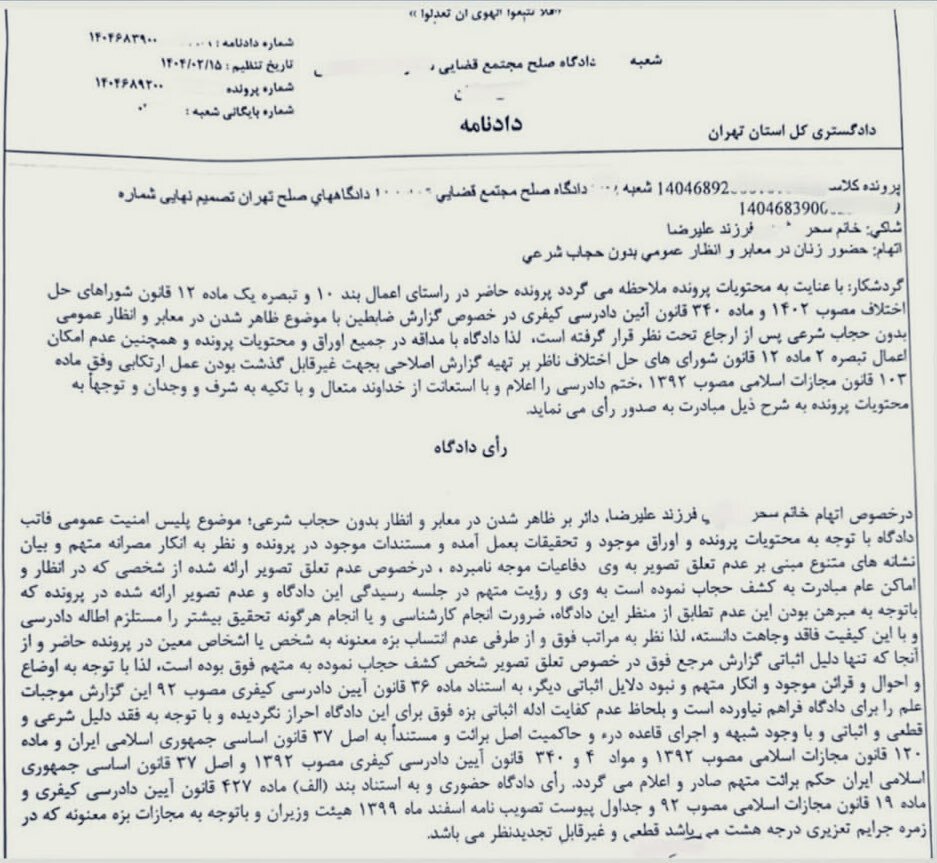 «فلا تتبعوا الهوی ان تعدلوا »
شماره دادنامه : ۱۴۰۴۶۸۳۹۰۰
تاریخ تنظیم : ۱۴۰۴/۰۲/۱۵
شماره پرونده ۱۴۰۴۶۸۹۲۰۰
شماره بایگانی شعبه :
شعبه دادگاه صلح مجتمع قضایی
دادنامه
دادگستری کل استان تهران
پرونده کلاسه 14046892 شعبه دادگاه صلح مجتمع قضایی دادگاههای صلح تهران تصمیم نهایی شماره
140468390
شاکی: خانم سحر فرزند علیرضا
اتهام: حضور زنان در معابر و انظار عمومی بدون حجاب شرعی
گردشکار: با عنایت به محتویات پرونده ملاحظه می گردد پرونده حاضر در راستای اعمال بند ۱۰ و تبصره یک ماده ۱۲ قانون شوراهای حل
اختلاف مصوب ۱۴۰۲ و ماده ۳۴۰ قانون آئین دادرسی کیفری در خصوص گزارش ضابطین با موضوع ظاهر شدن در معابر و انظار عمومی
بدون حجاب شرعی پس از ارجاع تحت نظر قرار گرفته است، لذا دادگاه با مداقه در جمیع اوراق و محتویات پرونده و همچنین عدم امکان
اعمال تبصره ۲ ماده ۱۲ قانون شورای های حل اختلاف ناظر بر تهیه گزارش اصلاحی بجهت غیرقابل گذشت بودن عمل ارتکابی وفق ماده
۱۰۳ قانون مجازات اسلامی مصوب ۱۳۹۲ ،ختم دادرسی را اعلام و با استعانت از خداوند متعال و با تکیه به شرف و وجدان و توجهاً به
محتویات پرونده به شرح ذیل مبادرت به صدور رأی می نماید.
رأی دادگاه
درخصوص اتهام خانم سحر فرزند علیرضا، دائر بر ظاهر شدن در معابر و انظار بدون حجاب شرعی؛ موضوع پلیس امنیت عمومی فاتب
دادگاه با توجه به محتویات پرونده و اوراق موجود و تحقیقات بعمل آمده و مستندات موجود در پرونده و نظر به انکار مصرانه متهم و بیان
نشانه های متنوع مبنی بر عدم تعلق تصویر به وی دفاعیات موجه نامبرده ، درخصوص عدم تعلق تصویر ارائه شده از شخصی که در انظار و
اماکن عام مبادرت به کشف حجاب نموده است به وی و رؤیت متهم در جلسه رسیدگی این دادگاه و عدم تصویر ارائه شده در پرونده که
باتوجه به مبرهن بودن این عدم تطابق از منظر این دادگاه، ضرورت انجام کارشناسی و یا انجام هرگونه تحقیق بیشتر را مستلزم اطاله دادرسی
و با این کیفیت فاقد وجاهت دانسته، لذا نظر به مراتب فوق و از طرفی عدم انتساب بزه معنونه به شخص یا اشخاص معین در پرونده حاضر و از
آنجا که تنها دلیل اثباتی گزارش مرجع فوق در خصوص تعلق تصویر شخص کشف حجاب نموده به متهم فوق بوده است، لذا با توجه به اوضاع
و احوال و قرائن موجود و انکار متهم و نبود دلایل اثباتی دیگر، به استناد ماده ۳۶ قانون آیین دادرسی کیفری مصوب ۹۲ این گزارش موجبات
علم را برای دادگاه فراهم نیاورده است و بلحاظ عدم کفایت ادله اثباتی بزه فوق برای این دادگاه احراز نگردیده و با توجه به فقد دلیل شرعی و
قطعی و اثباتی و با وجود شبهه و اجرای قاعده درء و حاکمیت اصل برائت و مستنداً به اصل ۳۷ قانون اساسی جمهوری اسلامی ایران و ماده
۱۲۰ قانون مجازات اسلامی مصوب ۱۳۹۲ و مواد ۴ و ۳۴۰ قانون آیین دادرسی کیفری مصوب ۱۳۹۲ و اصل ۳۷ قانون اساسی جمهوری
اسلامی ایران حکم برائت متهم صادر و اعلام می گردد. رأی دادگاه حضوری و به استناد بند (الف) ماده ۴۲۷ قانون آیین دادرسی کیفری و
ماده ۱۹ قانون مجازات اسلامی مصوب ۹۲ و جداول پیوست تصویب نامه اسفند ماه ۱۳۹۹ هیئت وزیران و باتوجه به مجازات بزه معنونه که در
زمره جرایم تعزیری درجه هشت می باشد قطعی و غیرقابل تجدیدنظر می باشد.